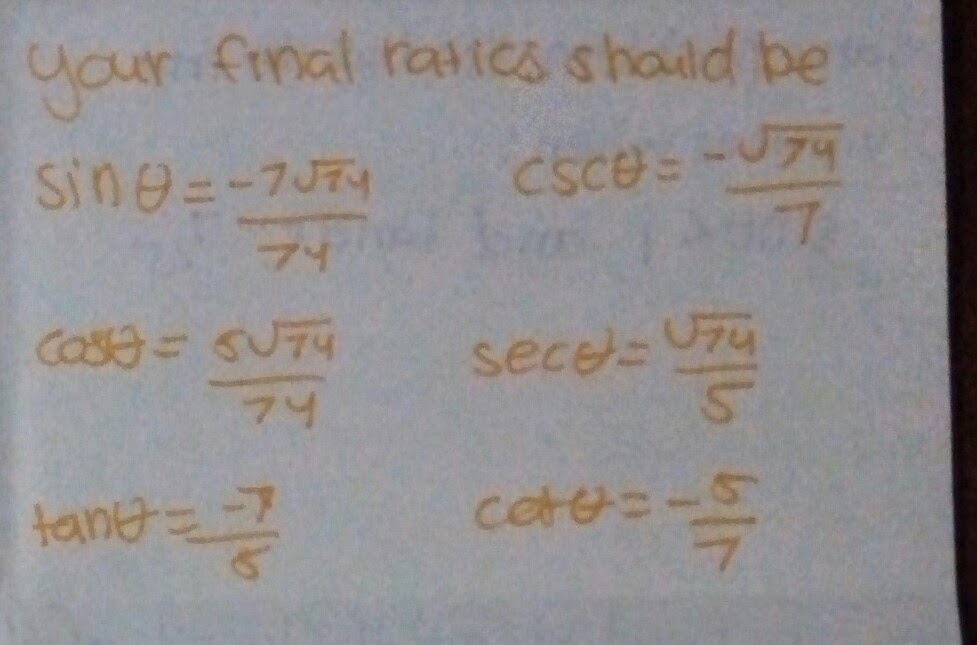 your final ratios should be
sinθ = -7√74/74    cscθ = -√74/7
cosθ = 5√74/74    secθ = √74/5
tanθ = -7/5    cotθ = -5/7